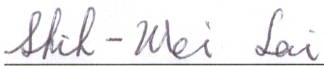 Shih-Wei Lai